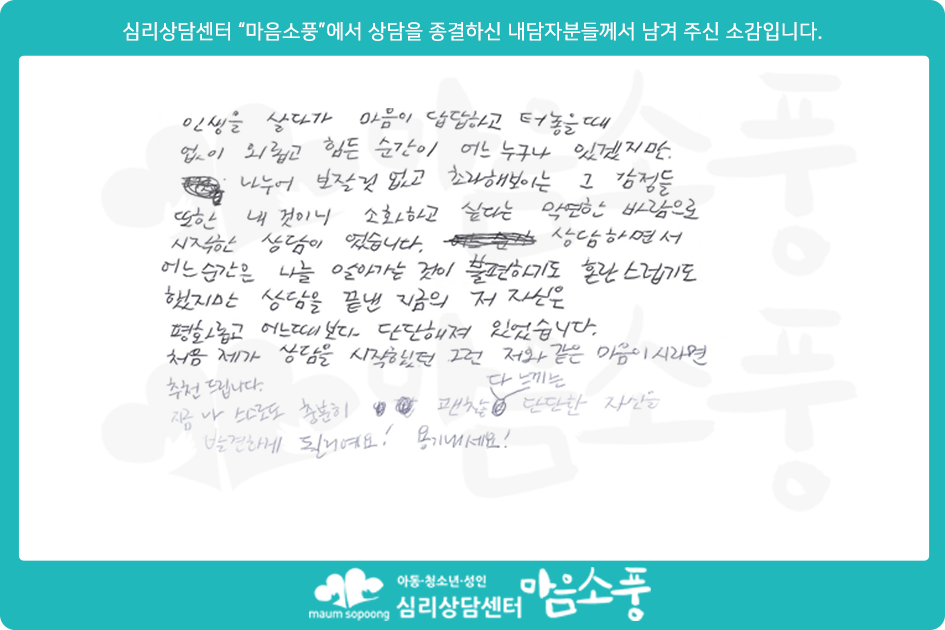 심리상담센터 “마음소풍”에서 상담을 종결하신 내담자분들께서 남겨 주신 소감입니다.
인생을 살다가 마음이 답답하고 터놓을때
없이 외롭고 힘든 순간이 어느 누구나 있겠지만.
나누어 보잘것 없고 초라해보이는 그 감정들
또한 내 것이니 소화하고 싶다는 막연한 바람으로
시작한 상담이 었습니다. 상담하면서
어느순간은 나를 알아가는 것이 불편하기도 혼란스럽기도
했지만 상담을 끝낸 지금의 저 자신은
평화롭고 어느때보다 단단해져 있었습니다.
처음 제가 상담을 시작했던 그런 저와 같은 마음이시라면
추천 드립니다.
다 느끼는
지금 나 스스로도 충분히 괜찮 단단한 자신을
발견하게 되리예요! 용기내세요!
maum sopoong
아동·청소년·성인
심리상담센터 마음소풍